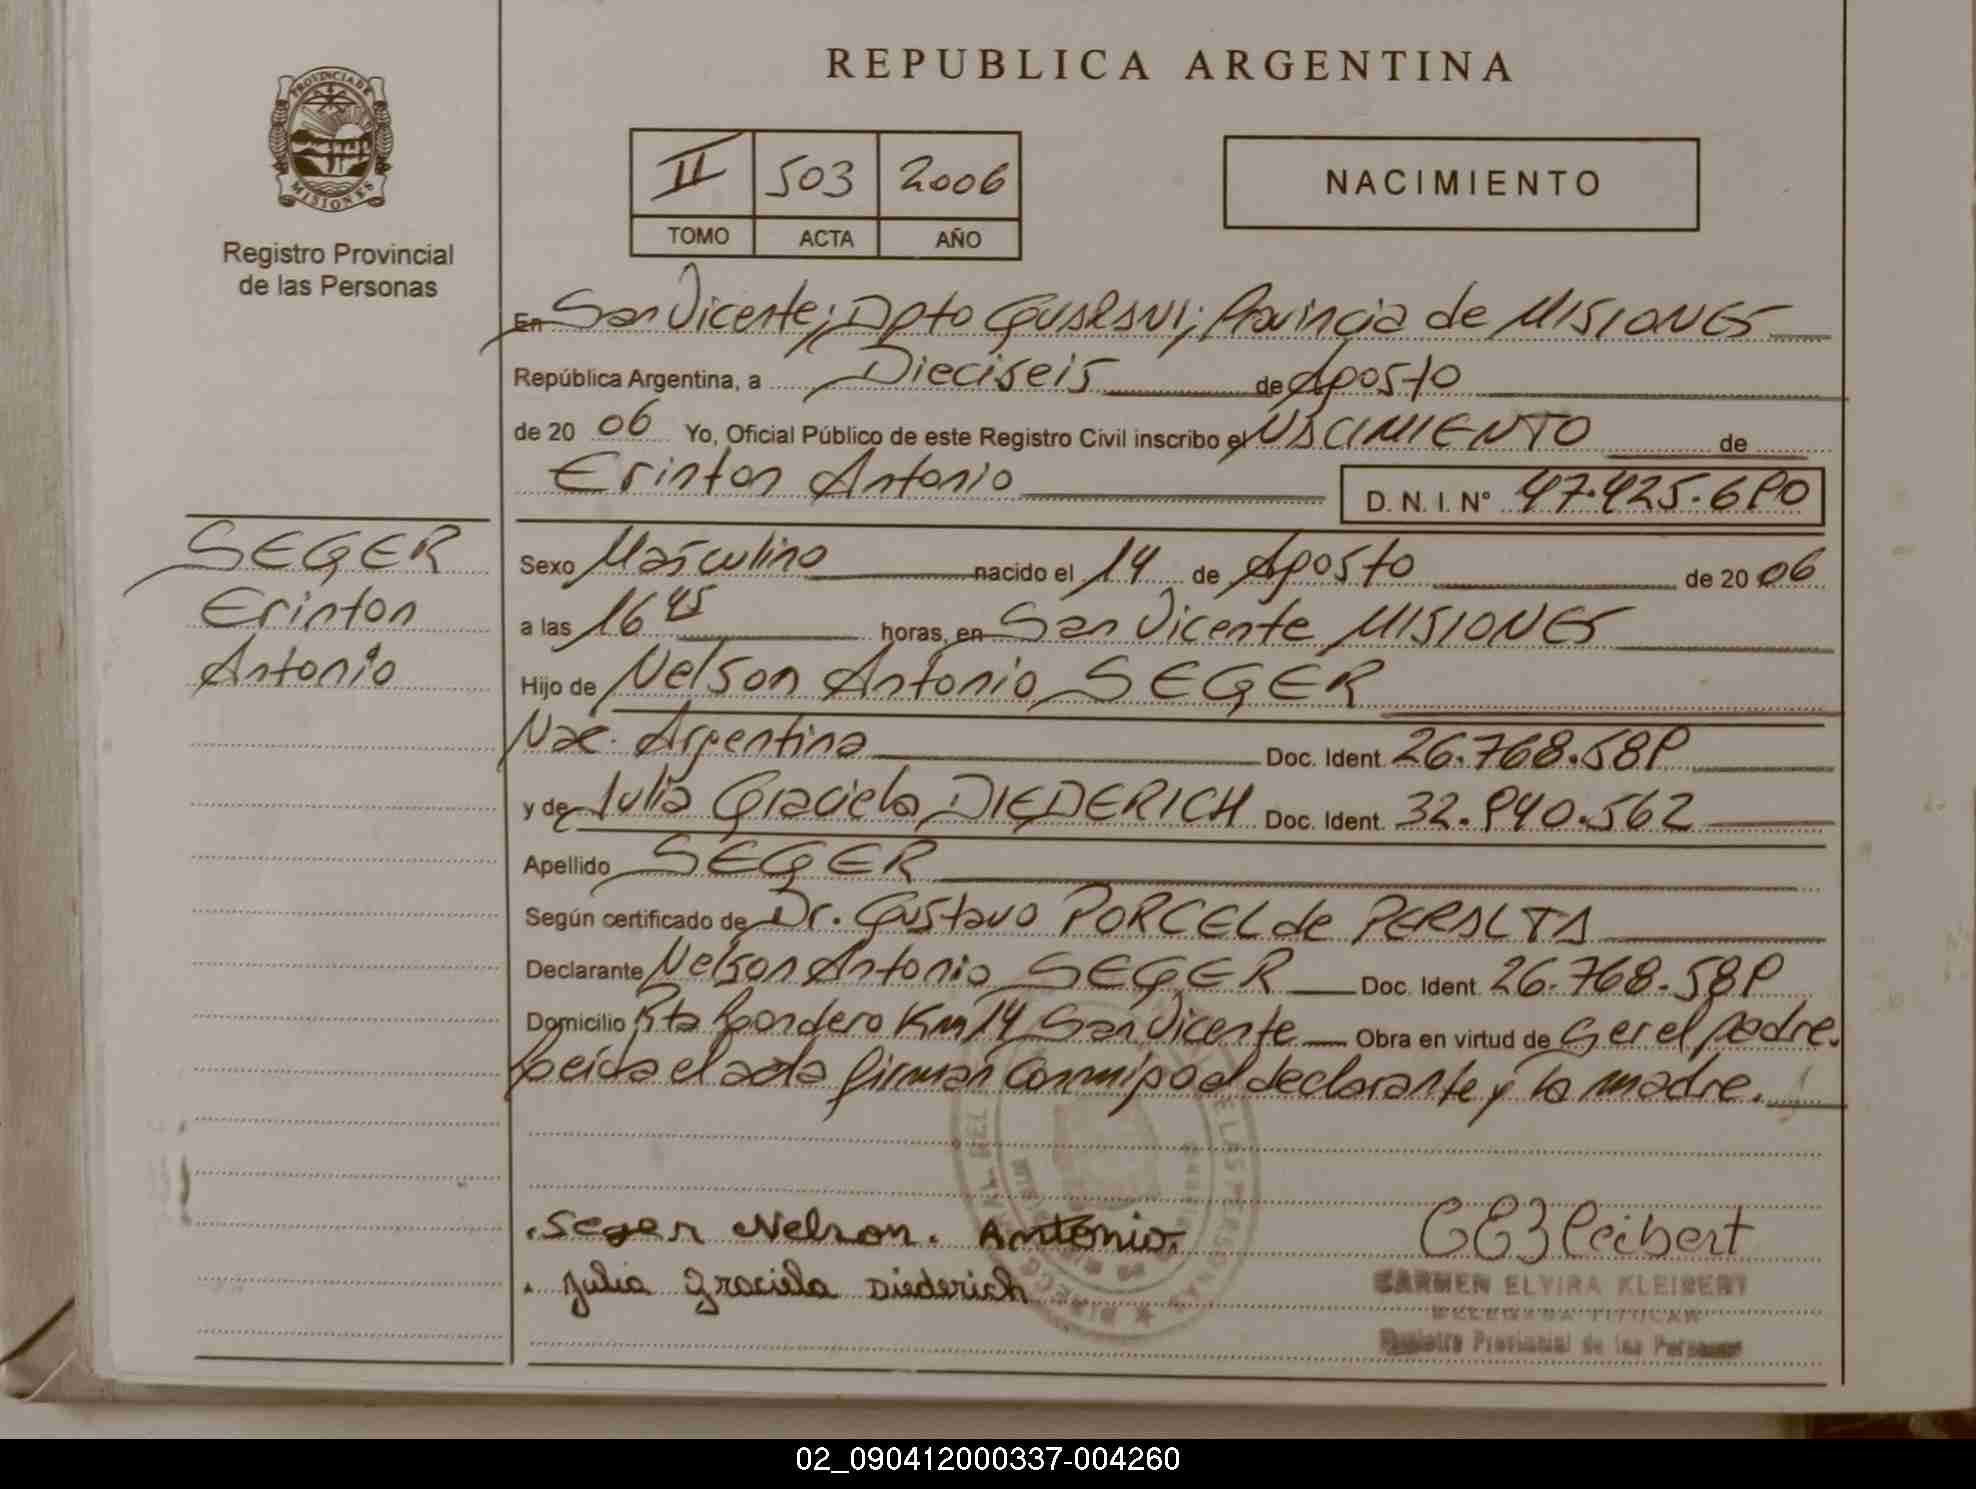 REPUBLICA ARGENTINA
PROVINCIA DE
MISIONES
Registro Provincial
de las Personas
II 503 2006
TOMO ACTA AÑO
NACIMIENTO
En San Vicente; Dpto Guarani; Provincia de MISIONES
República Argentina, a Dieciseis de Agosto
de 20 06 Yo, Oficial Público de este Registro Civil inscribo el NACIMIENTO de
Erinton Antonio D. N. I. Nº 47.425.690
SEGER
Erinton
Antonio
Sexo Masculino nacido el 14 de Agosto de 20 06
a las 16 45 horas, en San Vicente MISIONES
Hijo de Nelson Antonio SEGER
Nac. Argentina Doc. Ident. 26.768.589
y de Julia Graciela DIEDERICH Doc. Ident. 32.940.562
Apellido SEGER
Según certificado de Dr. Gustavo PORCEL de PERALTA
Declarante Nelson Antonio SEGER Doc. Ident. 26.768.589
Domicilio Rta Km 14 San Vicente Obra en virtud de ser el padre.
Leida el acta firman conmigo el declarante y la madre.
Seger Nelson. Antonio.
Julia Graciela Diederich
CARMEN ELVIRA KLEIBERT
DELEGADA TITULAR
Registro Provincial de las Personas
02_090412000337-004260